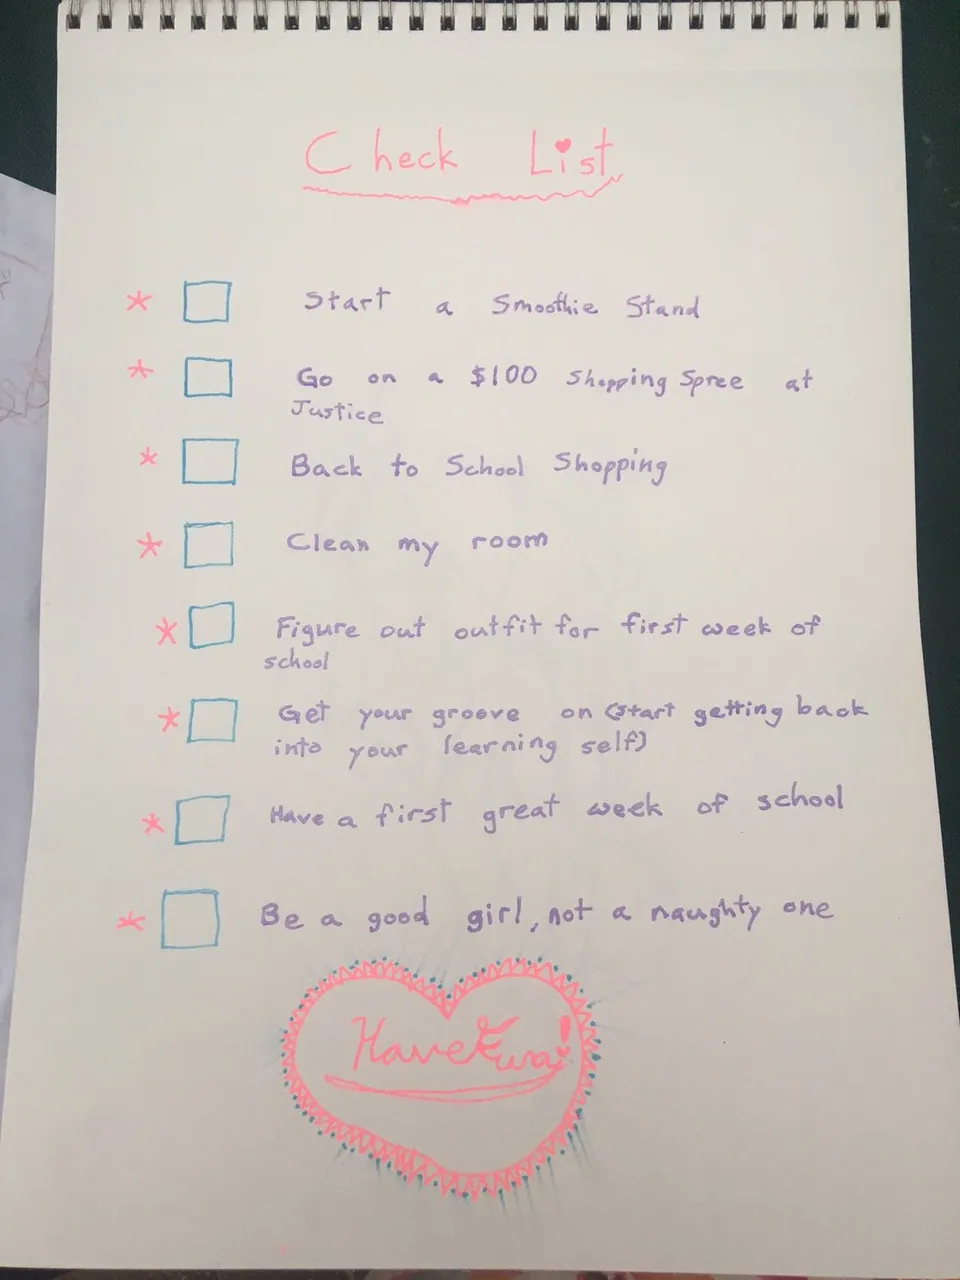 Check List
Start a Smoothie Stand
Go on a $100 Shopping Spree at
Justice
Back to School Shopping
Clean my room
Figure out outfit for first week of
school
Get your groove on (start getting back
into your learning self)
Have a first great week of school
Be a good girl, not a naughty one
Have